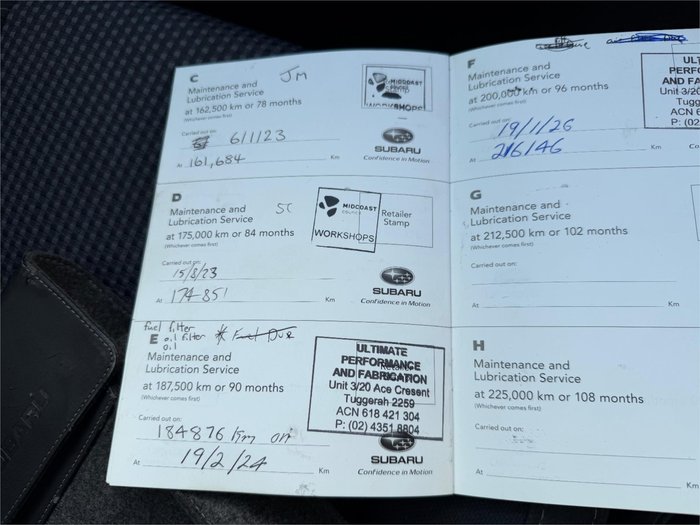 C
JM
Maintenance and
Lubrication Service
at 162,500 km or 78 months
(Whichever comes first)
MIDCOAST
WORKSHOPS
Carried out on:
6/1/23
At 161,684 Km
SUBARU
Confidence in Motion
D
Maintenance and
Lubrication Service
SC
at 175,000 km or 84 months
(Whichever comes first)
MIDCOAST
COUNCIL
WORKSHOPS
Retailer
Stamp
Carried out on:
15/8/23
At 174 851 Km
SUBARU
Confidence in Motion
fuel filter
E oil filter * Fuel Due
oil
Maintenance and
Lubrication Service
at 187,500 km or 90 months
(Whichever comes first)
ULTIMATE
PERFORMANCE
AND FABRICATION
Unit 3/20 Ace Cresent
Tuggerah 2259
ACN 618 421 304
P: (02) 4351 8804
Carried out on:
184876 Km on
At 19/2/24 Km
SUBARU
Confidence in Motion
F
Maintenance and
Lubrication Service
at 200,000 km or 96 months
(Whichever comes first)
ULT
PERFO
AND FA
Unit 3/20
Tugge
ACN 6
P: (02
Carried out on:
19/1/26
At 216146 Km
Co
G
Maintenance and
Lubrication Service
at 212,500 km or 102 months
(Whichever comes first)
Carried out on:
At Km
H
Maintenance and
Lubrication Service
at 225,000 km or 108 months
(Whichever comes first)
Carried out on:
At Km